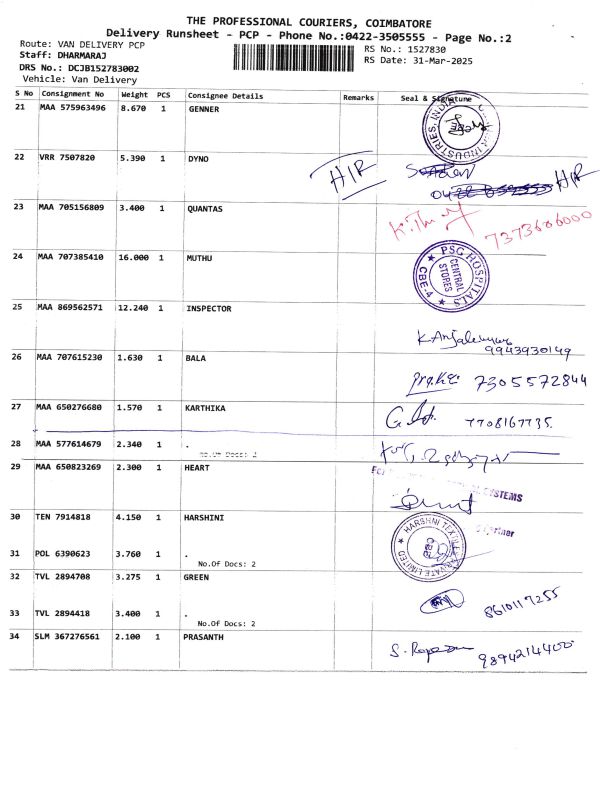 THE PROFESSIONAL COURIERS, COIMBATORE
Delivery Runsheet - PCP - Phone No.:0422-3505555 - Page No.:2
Route: VAN DELIVERY PCP
RS No.: 1527830
Staff: DHARMARAJ
RS Date: 31-Mar-2025
DRS No.: DCJB152783002
Vehicle: Van Delivery
S No Consignment No Weight PCS Consignee Details Remarks Seal & Signature
21 MAA 575963496 8.670 1 GENNER
INDUSTRIES, INDIA
22 VRR 7507820 5.390 1 DYNO
H/R
H/R
23 MAA 705156809 3.400 1 QUANTAS
7373606000
24 MAA 707385410 16.000 1 MUTHU
PSG HOSPITALS
CENTRAL STORES
CBE-4
25 MAA 869562571 12.240 1 INSPECTOR
9943930149
26 MAA 707615230 1.630 1 BALA
7305572844
27 MAA 650276680 1.570 1 KARTHIKA
7708167735.
28 MAA 577614679 2.340 1 .
No.Of Docs: 2
29 MAA 650823269 2.300 1 HEART
SYSTEMS
Partner
30 TEN 7914818 4.150 1 HARSHINI
HARSHNI TEXTILES PRIVATE LIMITED
31 POL 6390623 3.760 1 .
No.Of Docs: 2
32 TVL 2894708 3.275 1 GREEN
8610117255
33 TVL 2894418 3.400 1 .
No.Of Docs: 2
34 SLM 367276561 2.100 1 PRASANTH
9894214400